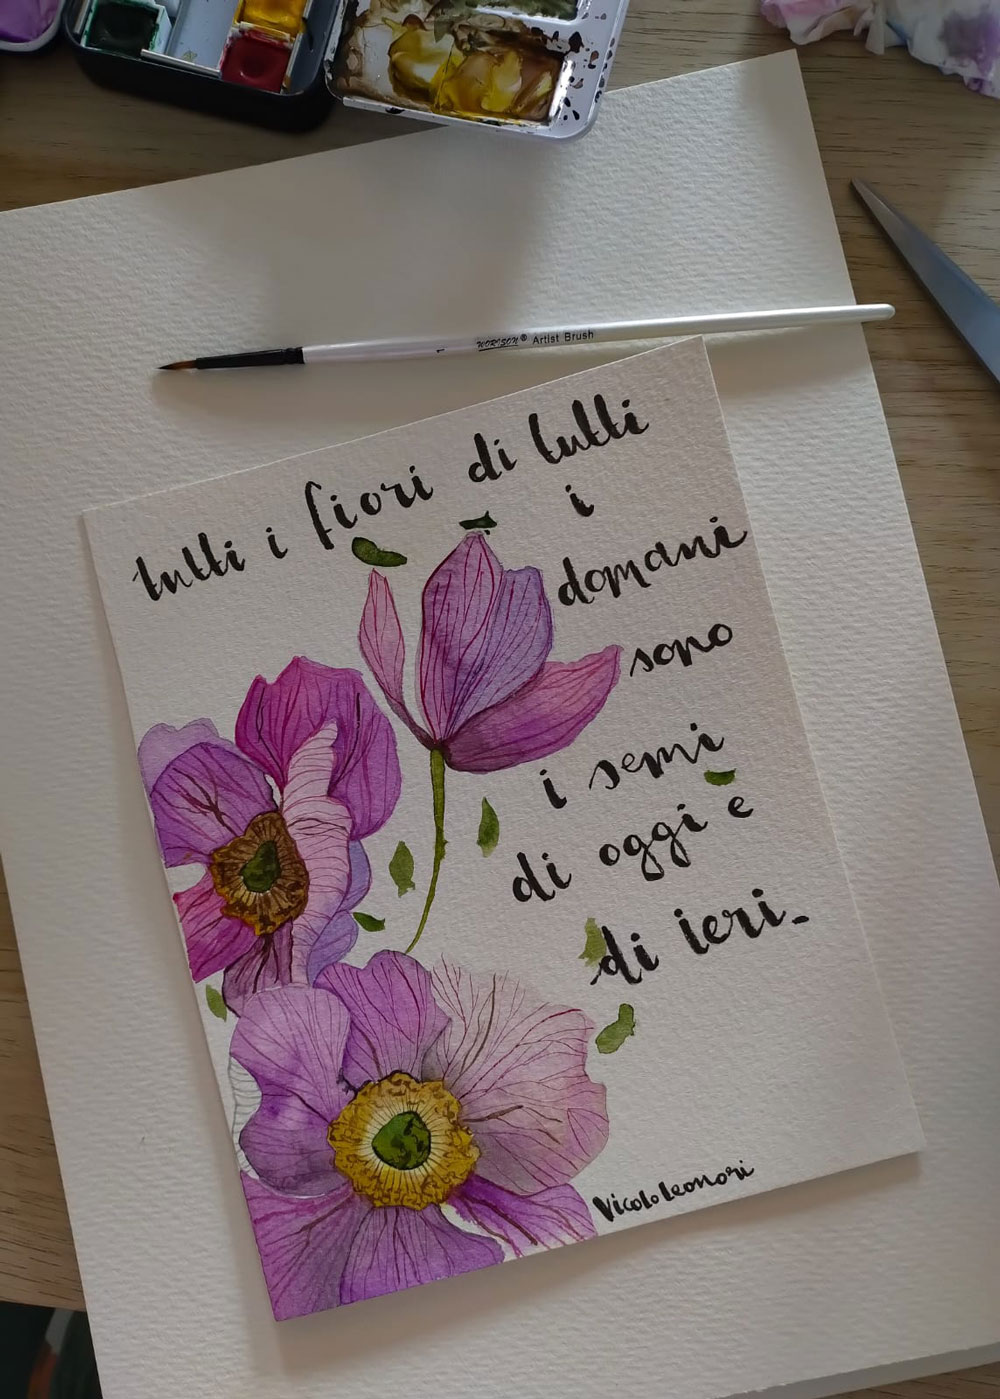 WORISON® Artist Brush
1
tutti i fiori di tutti
i
domani
sono
i semi
di oggi e
di ieri.
VicoloLeonori